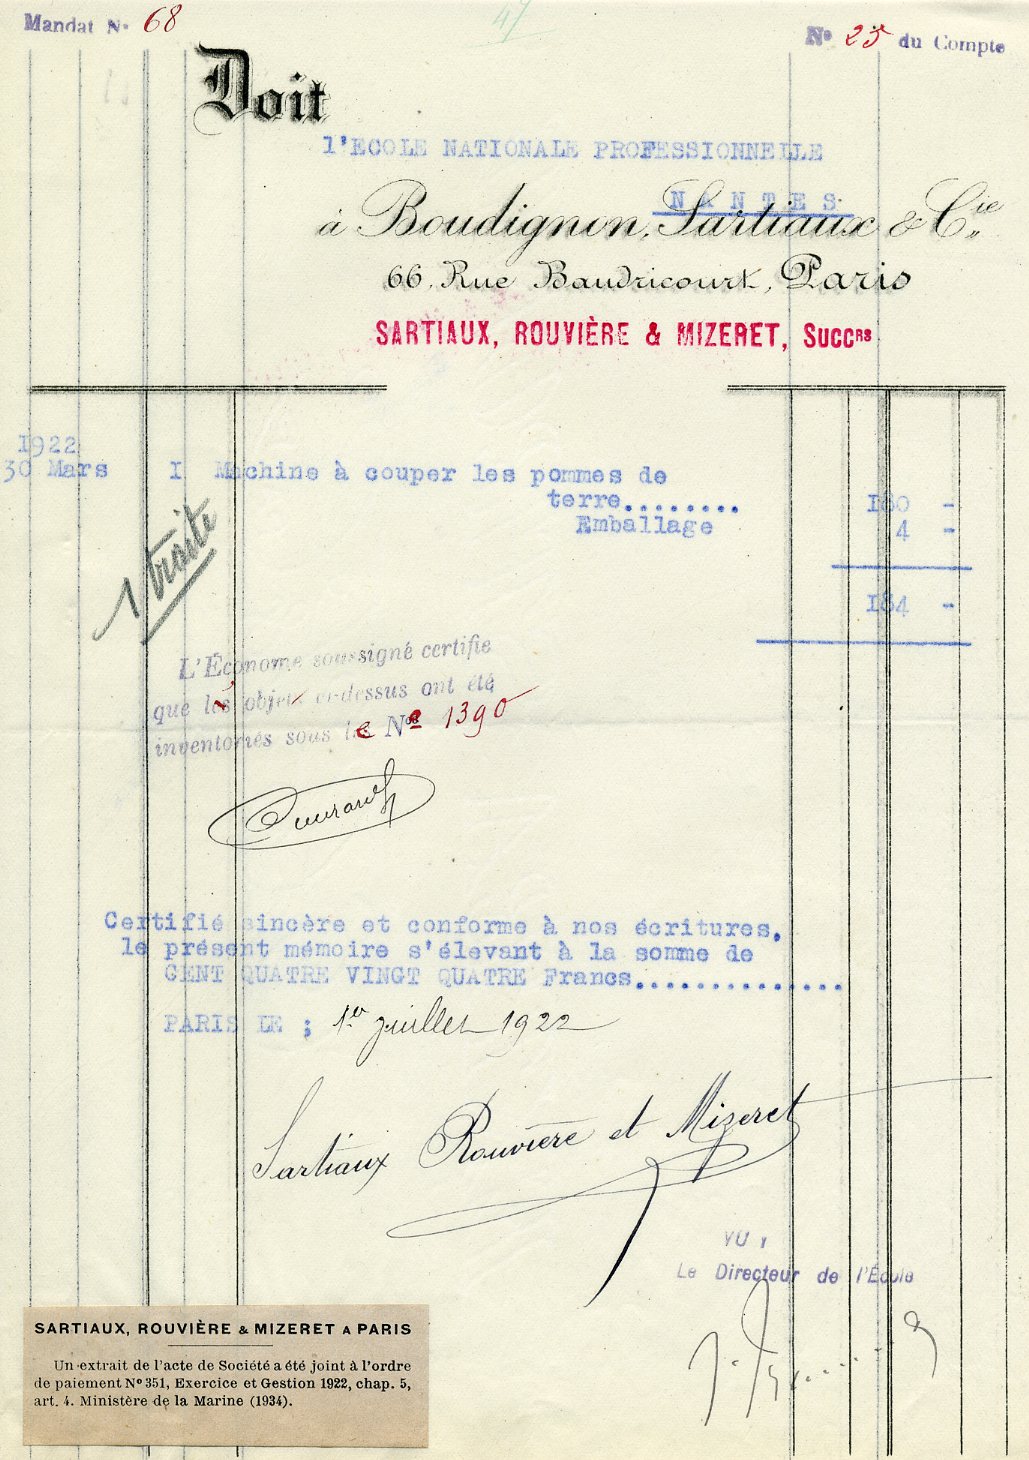 Mandat No 68
47
No 25 du Compte
Doit
l'ECOLE NATIONALE PROFESSIONNELLE
NANTES
à Boudignon, Sartiaux & Cie
66, Rue Baudricourt, Paris
SARTIAUX, ROUVIÈRE & MIZERET, SUCCRS
1922
30 Mars I Machine à couper les pommes de
terre........ 180 -
Emballage 4 -
184 -
1 traite
L'Économe soussigné certifie
que les objets ci-dessus ont été
inventoriés sous le No 1390
Certifié sincère et conforme à nos écritures.
le présent mémoire s'élevant à la somme de
CENT QUATRE VINGT QUATRE Francs..............
PARIS LE ; 1er juillet 1922
Sartiaux Rouvière et Mizeret
VU,
Le Directeur de l'École
SARTIAUX, ROUVIÈRE & MIZERET A PARIS
Un extrait de l'acte de Société a été joint à l'ordre
de paiement No 351, Exercice et Gestion 1922, chap. 5,
art. 4. Ministère de la Marine (1934).